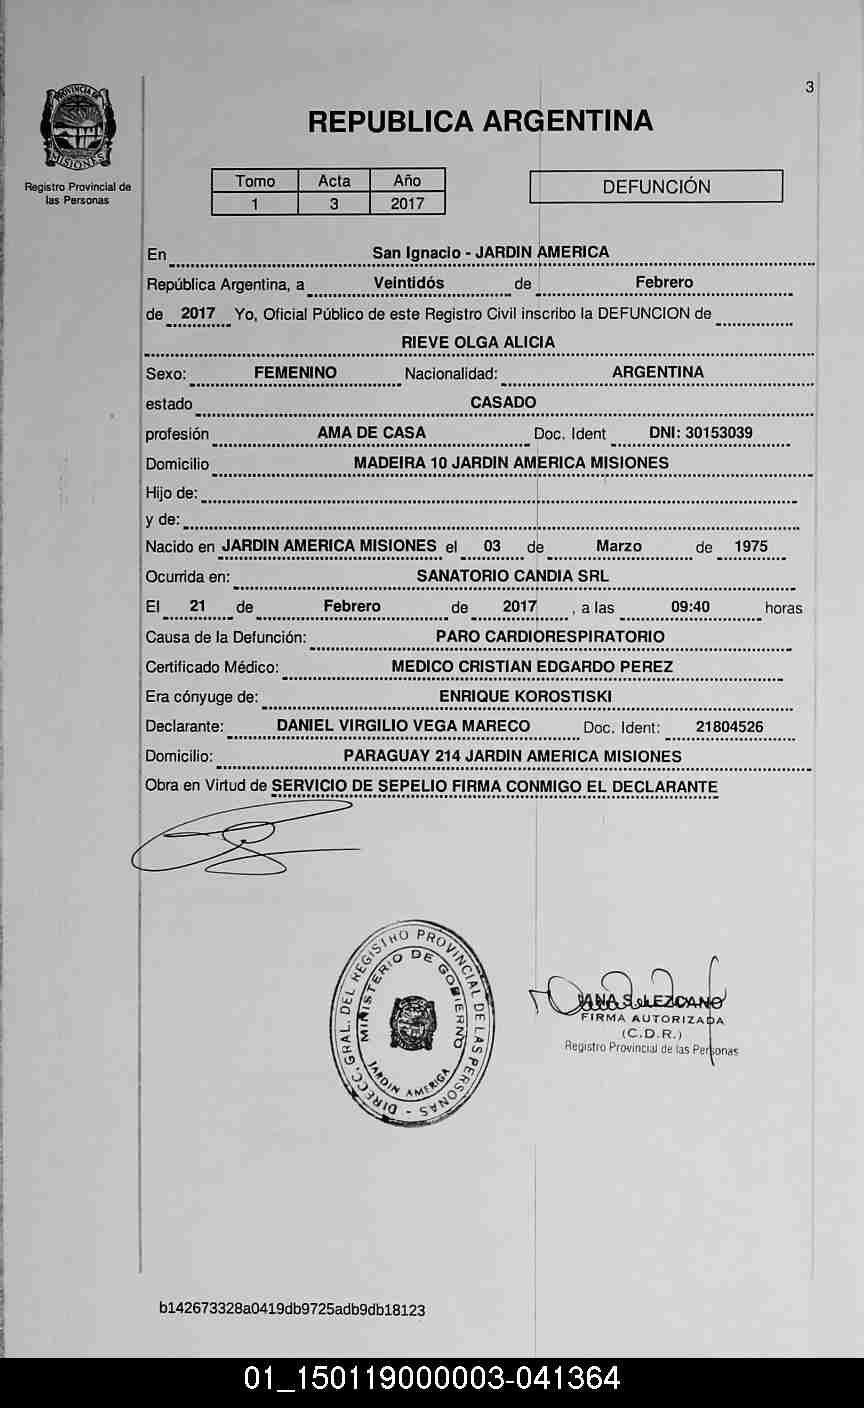 3
PROVINCIA DE
MISIONES
Registro Provincial de
las Personas
REPUBLICA ARGENTINA
Tomo Acta Año
1 3 2017
DEFUNCIÓN
En San Ignacio - JARDIN AMERICA
República Argentina, a Veintidós de Febrero
de 2017 Yo, Oficial Público de este Registro Civil inscribo la DEFUNCION de
RIEVE OLGA ALICIA
Sexo: FEMENINO Nacionalidad: ARGENTINA
estado CASADO
profesión AMA DE CASA Doc. Ident DNI: 30153039
Domicilio MADEIRA 10 JARDIN AMERICA MISIONES
Hijo de:
y de:
Nacido en JARDIN AMERICA MISIONES el 03 de Marzo de 1975
Ocurrida en: SANATORIO CANDIA SRL
El 21 de Febrero de 2017 , a las 09:40 horas
Causa de la Defunción: PARO CARDIORESPIRATORIO
Certificado Médico: MEDICO CRISTIAN EDGARDO PEREZ
Era cónyuge de: ENRIQUE KOROSTISKI
Declarante: DANIEL VIRGILIO VEGA MARECO Doc. Ident: 21804526
Domicilio: PARAGUAY 214 JARDIN AMERICA MISIONES
Obra en Virtud de SERVICIO DE SEPELIO FIRMA CONMIGO EL DECLARANTE
DIRECC. GRAL. DEL REGISTRO PROVINCIAL DE LAS PERSONAS -
MINISTERIO DE GOBIERNO
JARDIN AMERICA
LEZCANO
FIRMA AUTORIZADA
(C.D.R.)
Registro Provincial de las Personas
b142673328a0419db9725adb9db18123
01_150119000003-041364